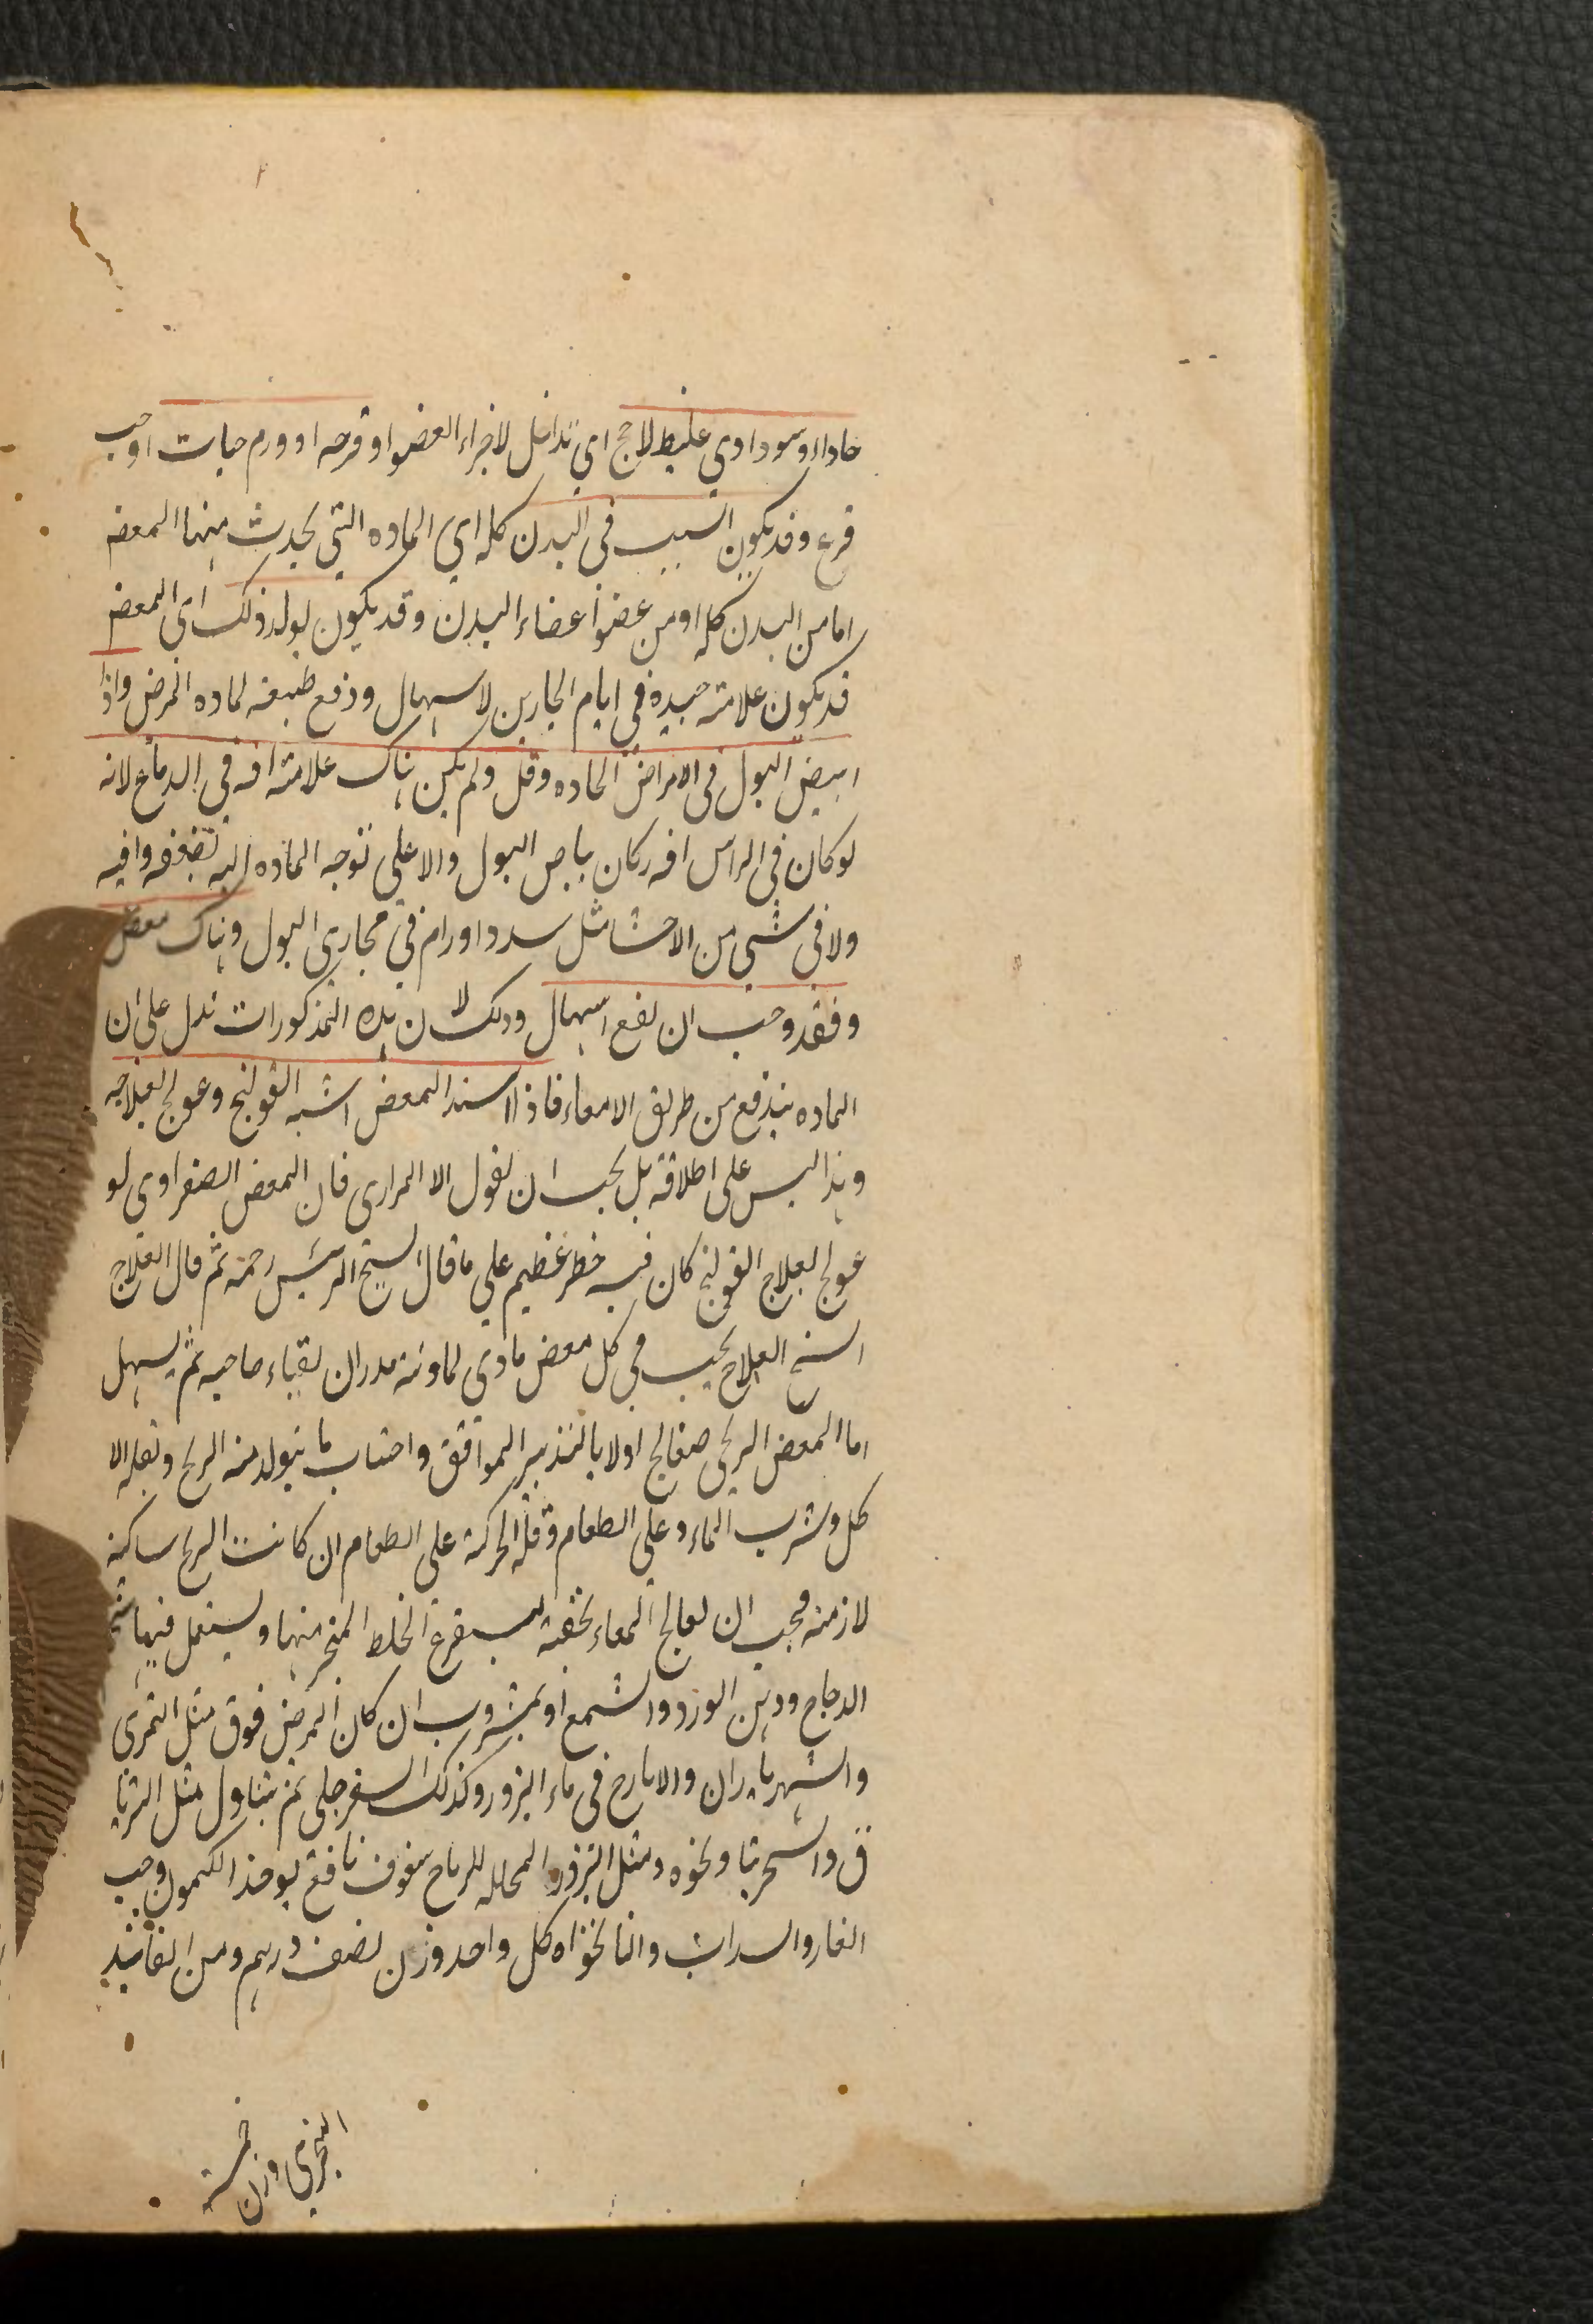 حاد او سوداوي غليظ لاحج اي تداخل لاجزاء العضو او قرحه او ورم حيات او حب
قرع وقد يكون السبب في البدن كله اي الماده التي يحدث منها المعض
اما من البدن كله او من عضو اعضاء البدن وقد يكون لولد ذلك اي المعض
قد يكون علامته جيده في ايام البحارين لاسهال ودفع طبيعه لماده المرض واذا
ابيض البول في الامراض الحاده وقل ولم يكن هناك علامته افه في الدماغ لانه
لو كان في الراس افه كان بياض البول والاعلي توجه الماده اليه تضعفه وافيه
ولا في شي من الاحشا مثل سدد او رام في مجاري البول وهناك معض
وفقد وجب ان يقع اسهال وذلك لان هذه المذكورات تدل على ان
الماده يندفع من طريق الامعاء فاذا اشتد المعض اشبه القولنج وعولج بعلاجه
وهذا ليس على اطلاقه بل يجب ان يقول الا المراري فان المعض الصفراوي لو
عولج بعلاج القولنج كان فيه خطر عظيم علي ما قال الشيخ الرئيس رحمه ثم قال العلاج
الشيخ العلاج يجب في كل معض مادي لماونه مدر ان يقياء صاحبه ثم يسهل
اما المعض الريحي فيعالج اولا بالتدبير الموافق واجتناب ما يتولد منه الريح وبقله الا
كل وشرب الماء وعلي الطعام وقله الحركة على الطعام ان كانت الريح ساكنه
لازمنه فيجب ان يعالج المعاء بحقنه ليستفرغ الخلط المنجر منها ويستعمل فيها شحم
الدجاج ودهن الورد والشمع او بمشروب ان كان المرض فوق مثل التمري
والشهرياران والايارج في ماء البزور وكذلك السفرجلي ثم يتناول مثل الترياق
ق والسحرنيا ونحوه ومثل البزور المحلله للرياح سفوف نافع يوخذ الكمون وحب
الغار والسداب والنانخواه كل واحد وزن نصف درهم ومن الفانيد
السجزي وزن خمسة